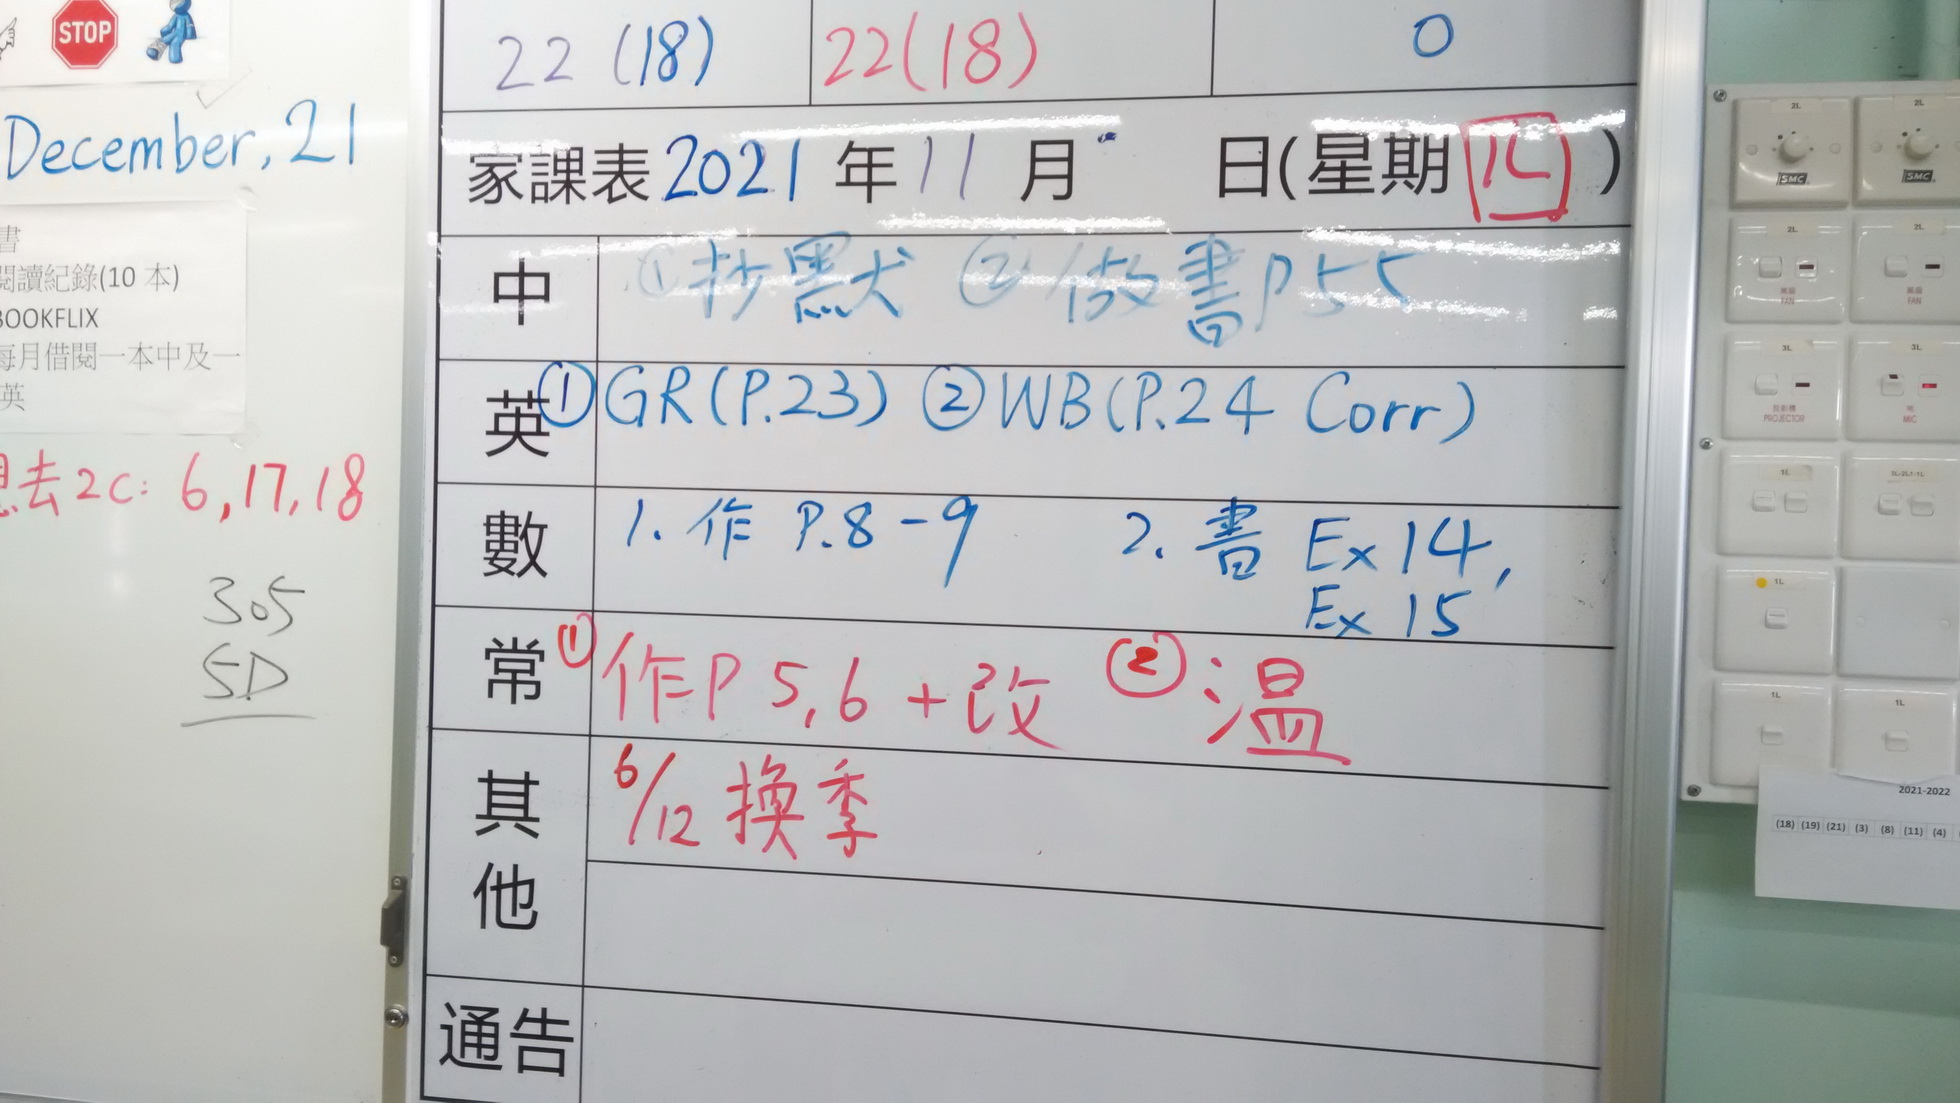 STOP
December, 21
書
閱讀紀錄(10 本)
BOOKFLIX
每月借閱一本中及一
英
去2C: 6,17,18
305
5D
22 (18) 22(18) 0
家課表 2021 年 11 月 日(星期四)
中 ①抄默犬 ②做書P55
英 ①GR(P.23) ②WB(P.24 Corr)
數 1. 作 P.8-9 2. 書 Ex 14,
Ex 15
常 ①作P 5,6 + 改 ②温
其他 6/12 換季
通告
2L 2L
SMC SMC
2L 2L
風扇 風扇
FAN FAN
3L 3L
投影機
PROJECTOR MIC
1L
1L
1L 1L
2021-2022
(18) (19) (21) (3) (8) (11) (4)